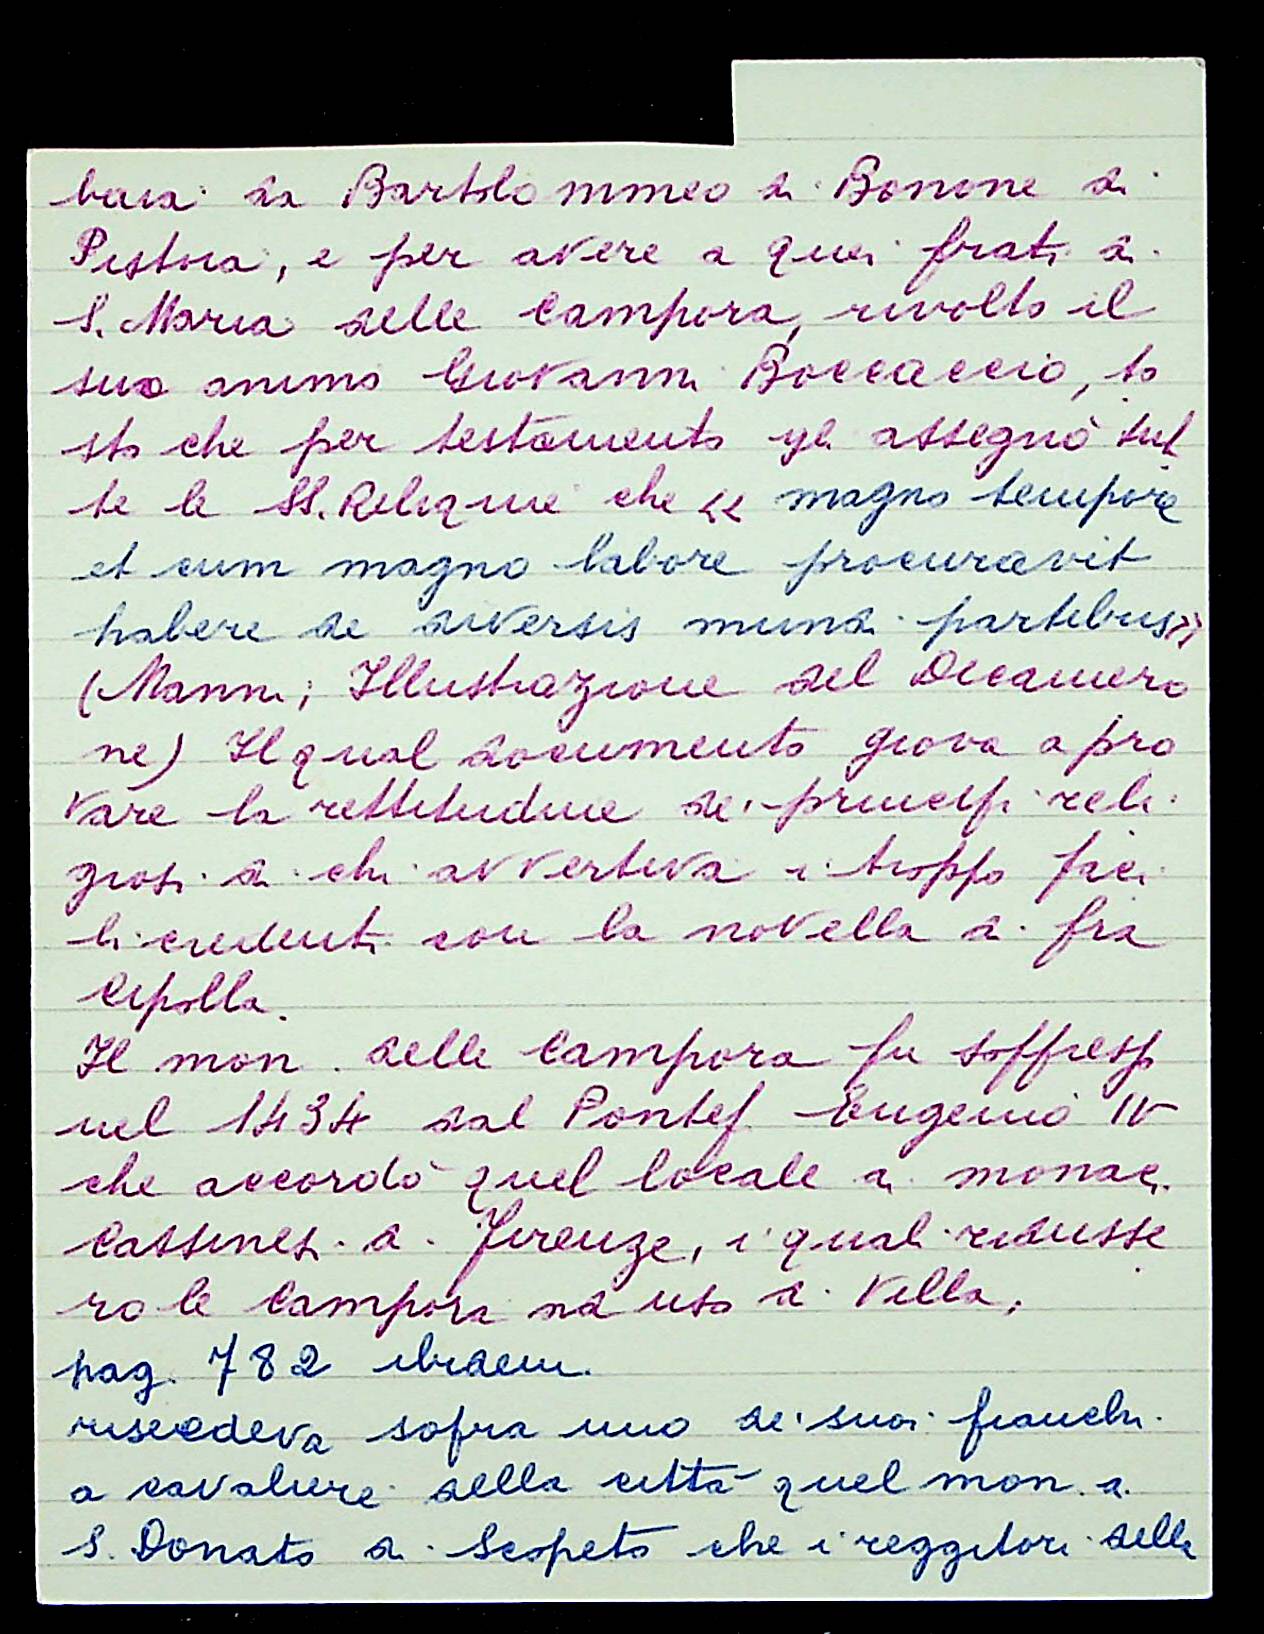 da Bartolommeo di Bonone di
Pistoia, e per avere a quei frati di
S. Maria delle Campora, rivolto il
suo animo Giovanni Boccaccio, to
sto che per testamento gli assegnò tut
te le SS. Reliquie che « magno tempore
et cum magno labore procuravit
habere de diversis mundi partibus»
(Manni, Illustrazione del Decamero
ne) Il qual documento giova a pro
vare la rettitudine dei principi reli
giosi di chi avvertiva i troppo faci
li credenti con la novella di fra
Cipolla.
Il mon. delle Campora fu soppresso
nel 1434 dal Pontef. Eugenio IV
che accordò quel locale ai monaci
Cassinesi di Firenze, i quali ridusse
ro le Campora ad uso di villa.
pag. 782 ibidem.
risiedeva sopra uno dei suoi fianchi
a cavaliere della città quel mon. di
S. Donato di Scopeto che i reggitori della